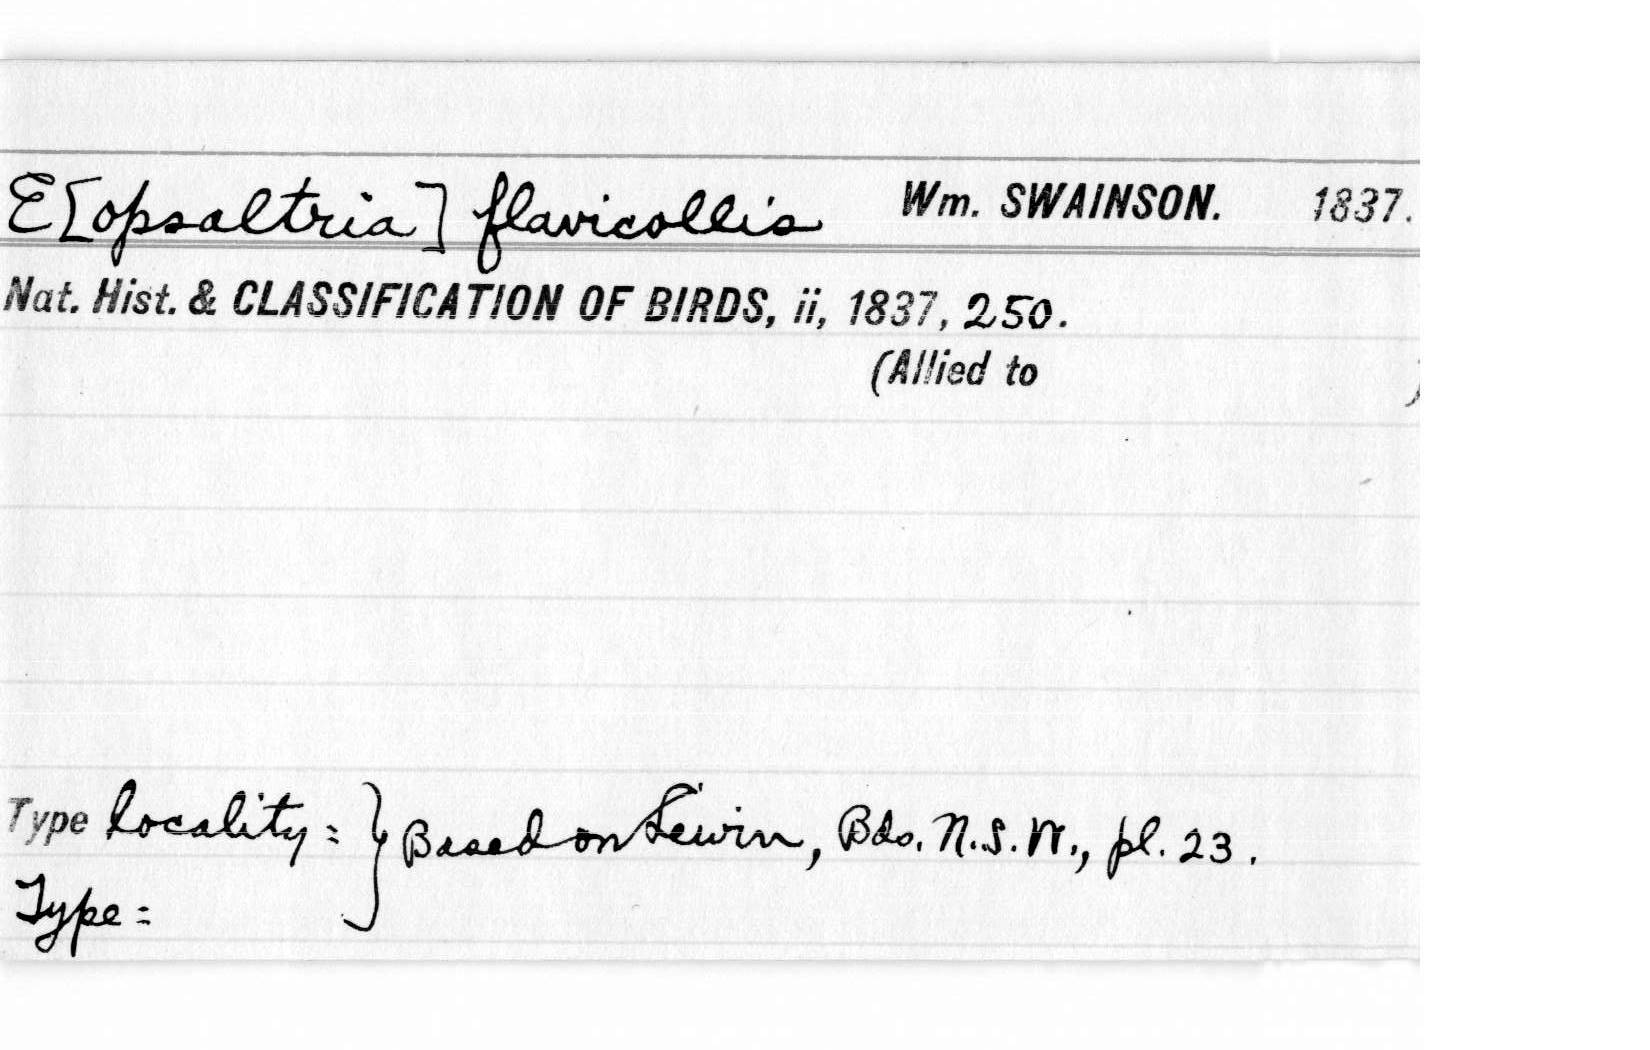 E[opsaltria] flavicollis Wm. SWAINSON. 1837.
Nat. Hist. & CLASSIFICATION OF BIRDS, ii, 1837, 250.
(Allied to )
Type locality: } Based on Lewin, Bds. N.S.W., pl. 23.
Type: